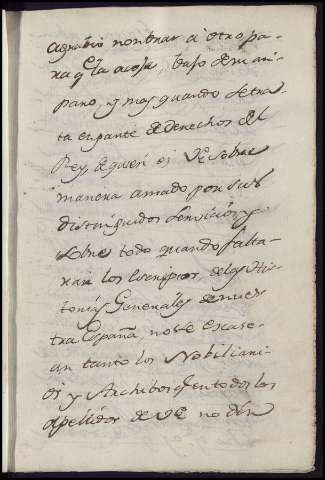 agravio nombrar à otro pa-
ra q̃ la acoja, bajo de su am-
paro, y mas quando se tra-
ta en parte de derechos del
Rey, de quien es VE sobre
manera amado por sus
distinguidos servicios, y
sobre todo quando falta-
ran los de las His-
torias Generales de nues-
tra España, no se escase-
an tanto los Nobiliari-
os y Archibos q̃ en todos los
apellidos de VE no den